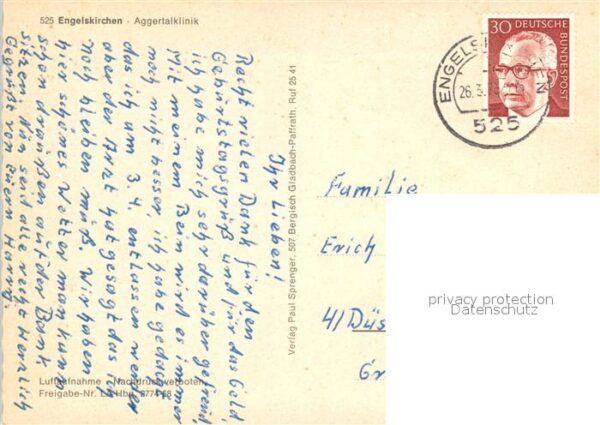 525 Engelskirchen · Aggertalklinik
Ihr Lieben!
Recht vielen Dank für den
Geburtstagsgruß und für das Geld,
ich habe mich sehr darüber gefreut,
Mit meinem Bein wird es immer
noch nicht besser, ich habe gedacht
das ich am 3.4. entlassen werde
aber der Arzt hat gesagt das ich
noch bleiben muß. Wir haben
hier schönes Wetter man kann
schon draußen auf der Bank
sitzen. Nun seid alle recht herzlich
Gegrüßt von Euern Harry.
Luftaufnahme - Nachdruck verboten,
Freigabe-Nr. LA Hbg. 3774 68
Verlag Paul Sprenger, 507 Bergisch Gladbach-Paffrath, Ruf 25 41
30 DEUTSCHE
BUNDESPOST
ENGELS
26.3.73
525
Familie
Erich
41 Düs
Gr
privacy protection
Datenschutz